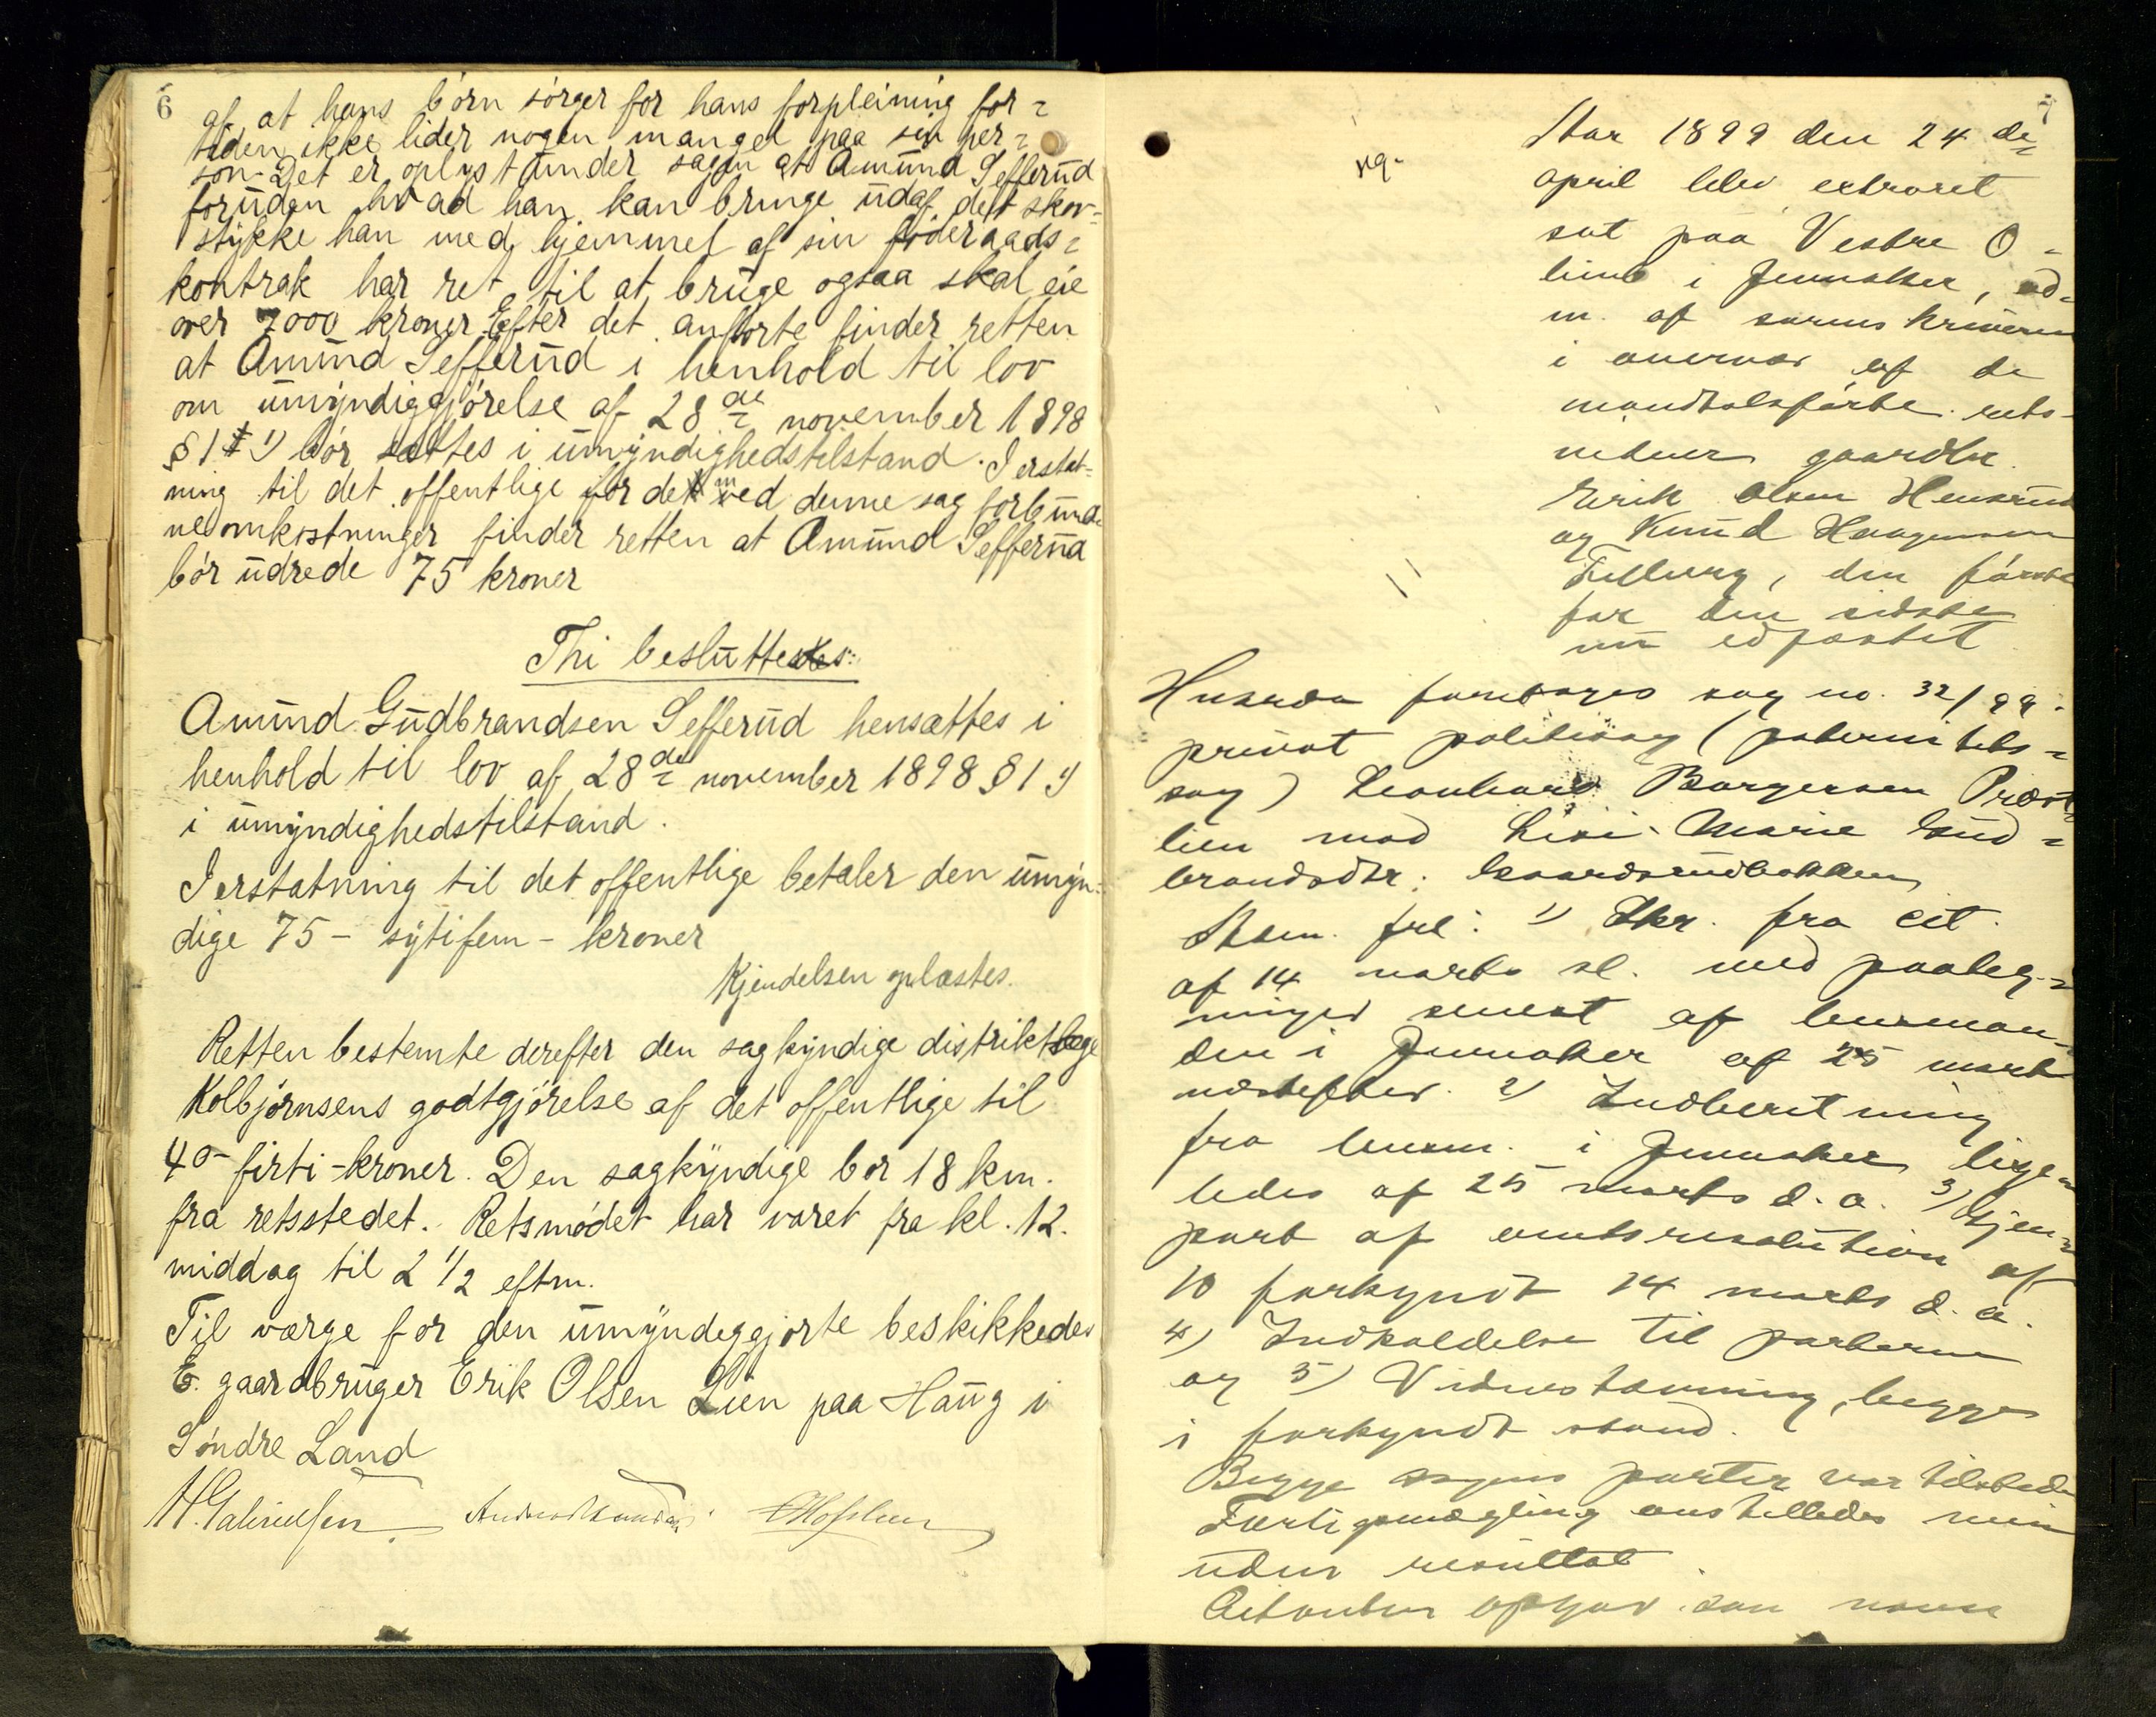 6
af at hans børn sørger for hans forpleining for=
tiden ikke lider nogen mangel paa sin per=
son. Det er oplyst under sagen at Amund Sefferud
foruden hvad han kan bringe udaf det skov=
stykke han med hjemmel af sin föderaads=
kontrak har ret til at bruge ogsaa skal eie
over 7000 kroner. Efter det anførte finder retten
at Amund Sefferud i henhold til lov
om umyndiggjørelse af 28de november 1898
§ 1 1) bør sættes i umyndighedstilstand. I erstat=
ning til det offentlige for dem ved denne sag forbund=
ne omkostninger finder retten at Amund Sefferud
bør udrede 75 kroner
Thi besluttes:
Amund Gudbrandsen Sefferud hensættes i
henhold til lov af 28de november 1898 § 1 1)
i umyndighedstilstand.
I erstatning til det offentlige betaler den umyn=
dige 75 - sytifem - kroner
Kjendelsen oplæstes.
Retten bestemte derefter den sagkyndige distriktslæge
Kolbjørnsens godtgjørelse af det offentlige til
40 - firti - kroner. Den sagkyndige bor 18 km.
fra retsstedet. Retsmødet har varet fra kl. 12.
middag til 2 1/2 eftm.
Til værge for den umyndeggjorte beskikkedes
E. gaardbruger Erik Olsen Lien paa Haug i
Søndre Land
7
Aar 1899 den 24 de
april blev extraret
sat paa Vestre O=
limb i Jevnaker, ad=
m. af sorenskriveren
i overvær af de
mandtalsførte rets-
vidner gaardbr.
Erik Olsen Hensrud
og Knud Haagensen
den første
for den sidste
nu edfæstet
Hvorda foretoges sag no. 32/99.
privat politisag (paternitets=
sag) Leonhard Borgersen Præst=
lien mod Lisi Marie Gud=
brandsdtr.
Skr. fra cit.
af 14 marts sl. med paateg=
ninger senest af lensman=
den i Jevnaker af 25 marts
næstefter. 2) Indberetning
fra lensm. i Jevnaker lige=
ledes af 25 marts d. a. 3) Gjen=
part af amtsresolution af
10 forkyndt 14 marts d. a.
4) Indkaldelse til parterne
og 5) Vidnestævning, begge
i forkyndt stand.
Begge sagens parter var tilstede
Forligsmægling anstilledes men
uden resultat.
Citanten opgav som navn